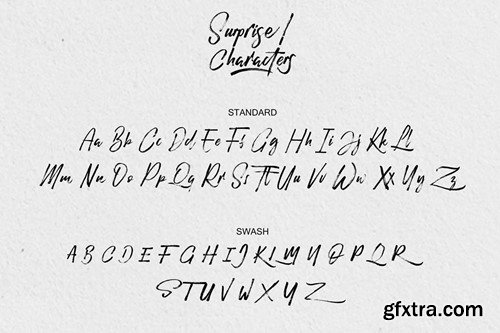 Surprise!
Characters
STANDARD
Aa Bb Cc Dd Ee Fs Gg Hh Ii Jj Kk Ll
Mm Nn Oo Pp Qq Rr Ss Tt Uu Vv Ww Xx Yy Zz
SWASH
A B C D E F G H I J K L M N O P Q R
S T U V W X Y Z
gfxtra.com